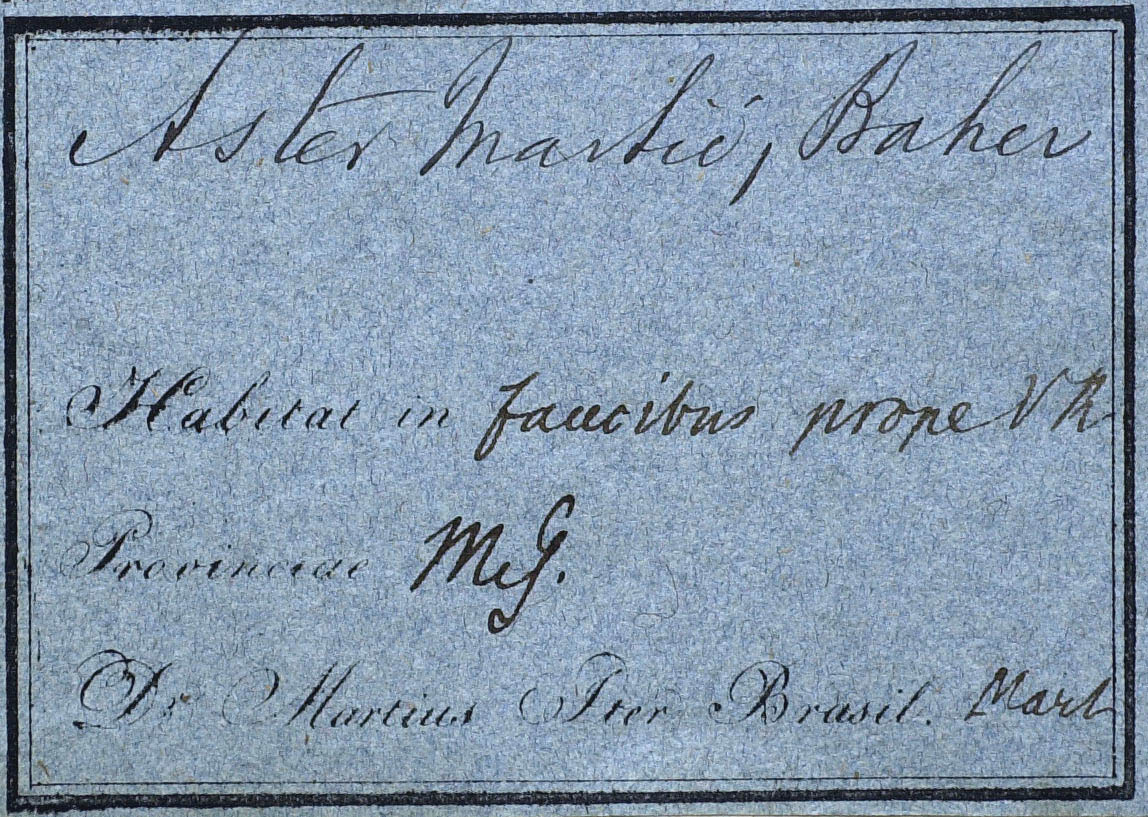 Aster Martii, Baker
Habitat in faucibus prope VR
Provinciae MG.
Dr. Martius Iter Brasil. Mart